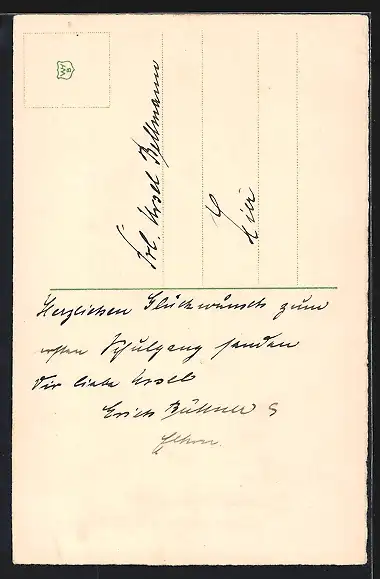 Frl. Ursel Bellmann
Hier
Herzlichen Glückwunsch zum
ersten Schulgang senden
Dir liebe Ursel
Erich Büttner
Eltern.